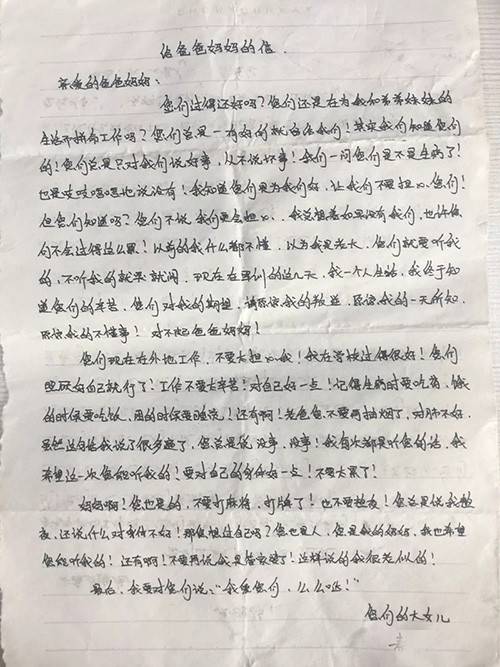 给爸爸妈妈的信.
亲爱的爸爸妈妈:
您们过得还好吗?您们还是在为我和弟弟妹妹的
生活而拼命工作吗?您们总是一有好的就给我们!其实我们知道您们
的!您们总是只对我们说好事,从不说坏事!我们一问您们是不是生病了!
也是支支吾吾地说没有!我知道您们是为我们好,让我们不要担心您们!
但您们知道吗?您们不说我们更会担心.我总想着如果没有我们,也许你
们不会过得这么累!以前的我什么都不懂,以为我是老大,您们就要听我
的,不听我的就哭就闹.现在在军训的这几天,我一个人生活,我终于知
道您们的辛苦,您们对我的期望,请原谅我的叛逆,原谅我的一无所知,
原谅我的不懂事!对不起爸爸妈妈!
您们现在在外地工作,不要太担心我!我在学校过得很好!您们
照顾好自己就行了!工作不要太辛苦!对自己好一点!记得生病时要吃药,饿
的时候要吃饭,困的时候要睡觉!还有啊!老爸爸不要再抽烟了,对肺不好,
虽然这句话我说了很多遍了,您总是说没事,没事!我每次都是听您的话,我
希望这一次您能听我的!要对自己的身体好一点!不要太累了!
妈妈啊!您也是的,不要打麻将,打牌了!也不要熬夜!您总是说我熬
夜,还说什么对身体不好!那您想过自己吗?您也是人,您是我的妈妈,我也希望
您能听我的!还有啊!不要再说我是管家婆了!这样说的我很老似的!
最后,我要对您们说:"我爱您们,么么哒!"
您们的大女儿